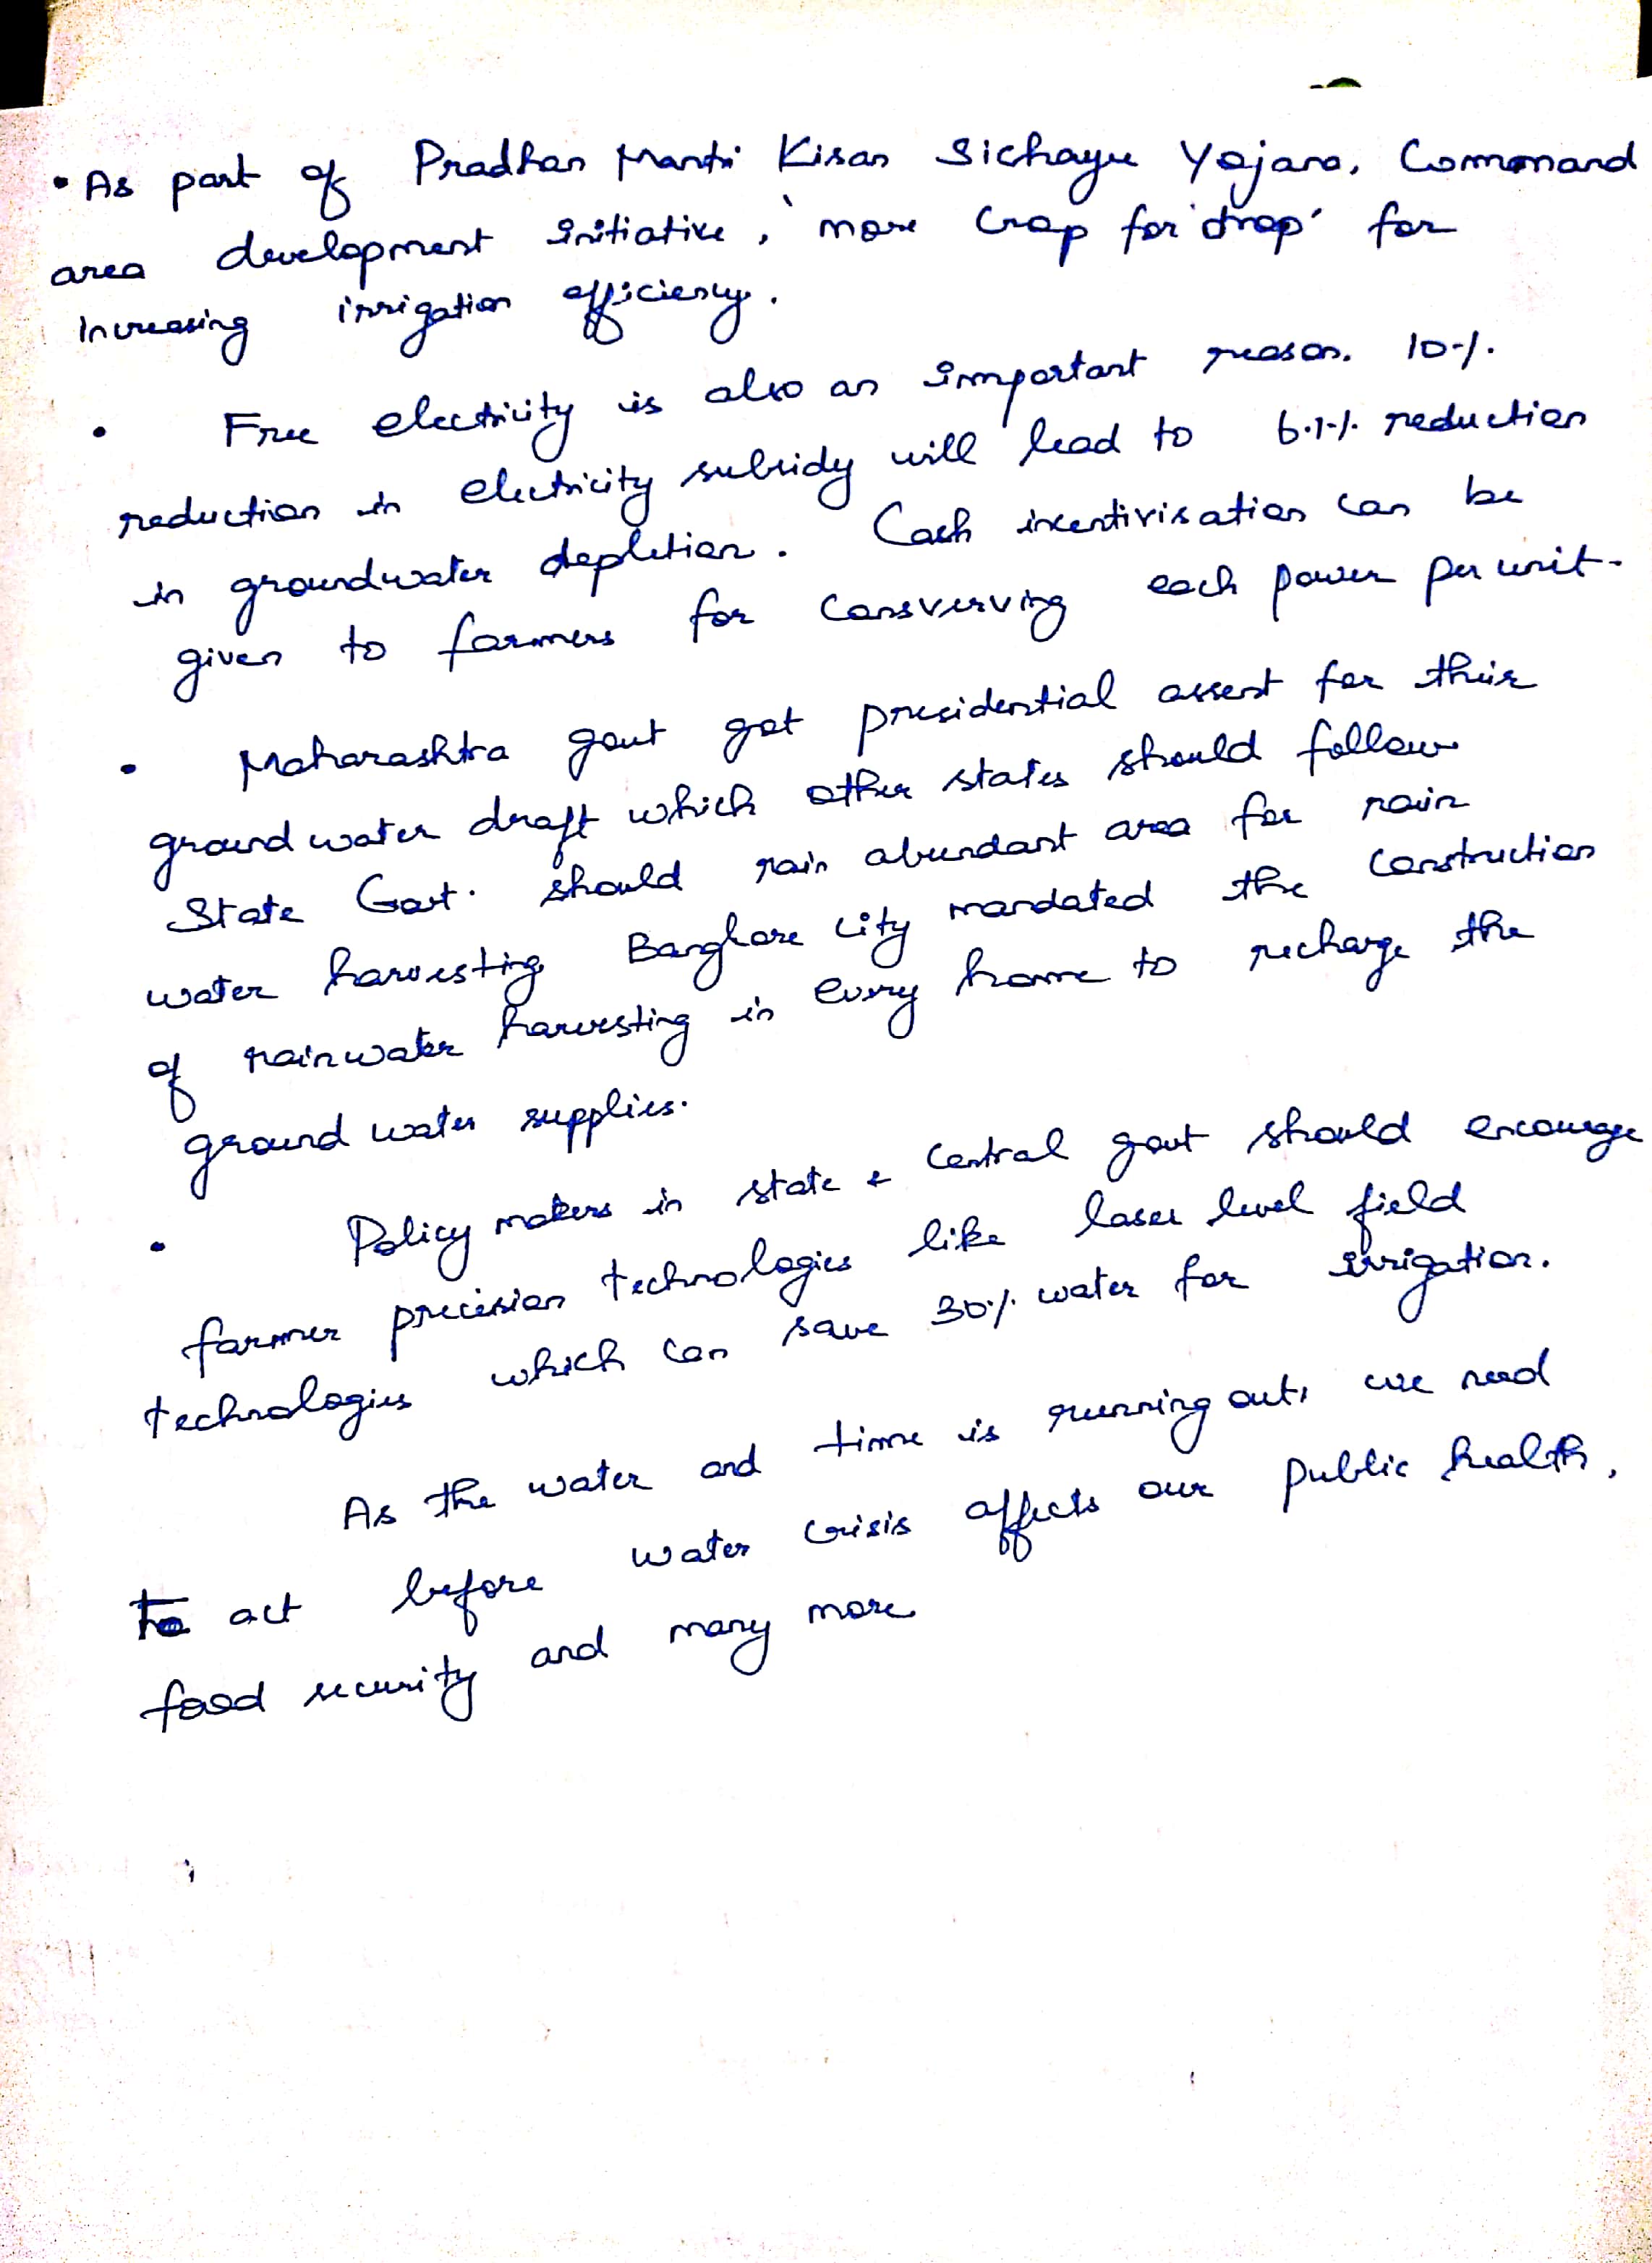 • As part of Pradhan Mantri Kisan Sichayee Yojana, Command
area development initiative, 'more Crop for drop' for
Increasing irrigation efficiency.
• Free electricity is also an important reason. 10%
reduction in electricity subsidy will lead to 6.7% reduction
in groundwater depletion. Cash incentivisation can be
given to farmers for consverving each power per unit.
• Maharashtra govt got presidential assent for their
ground water draft which other states should follow
State Govt. should rain abundant area for rain
water harvesting Banglore city mandated the construction
of rainwater harvesting in every home to recharge the
ground water supplies.
• Policy makers in state & central govt should encourage
farmer precision technologies like laser level field
technologies which can save 30% water for irrigation.
As the water and time is running out, we need
to act before water crisis affects our public health,
food security and many more